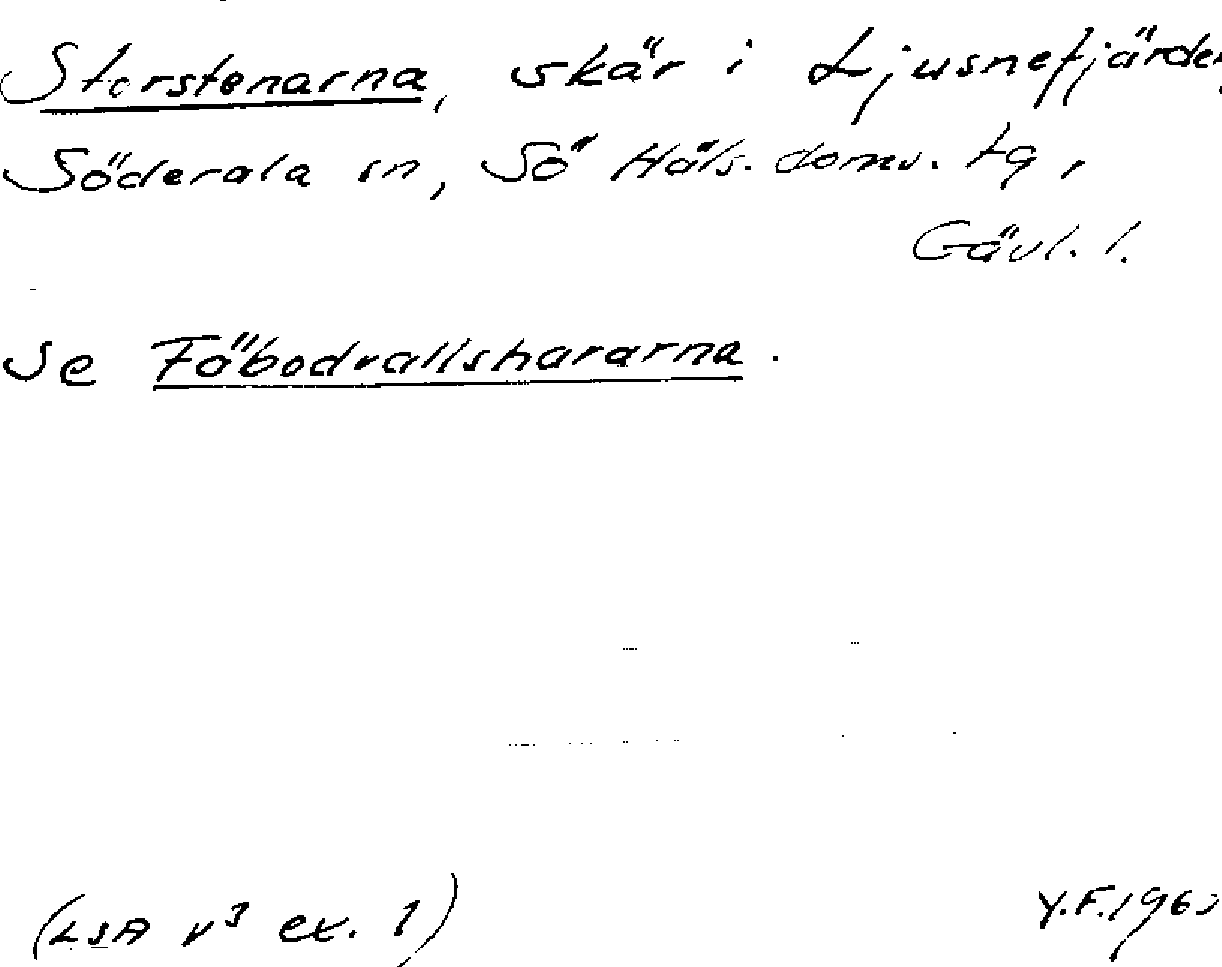 Storstenarna, skär i Ljusnefjärden,
Söderala sn, Sö Häls. domv. tg,
Gävl. l.
Se Fäbodvallshararna.
(LSA v³ ex. 1)
Y.F.